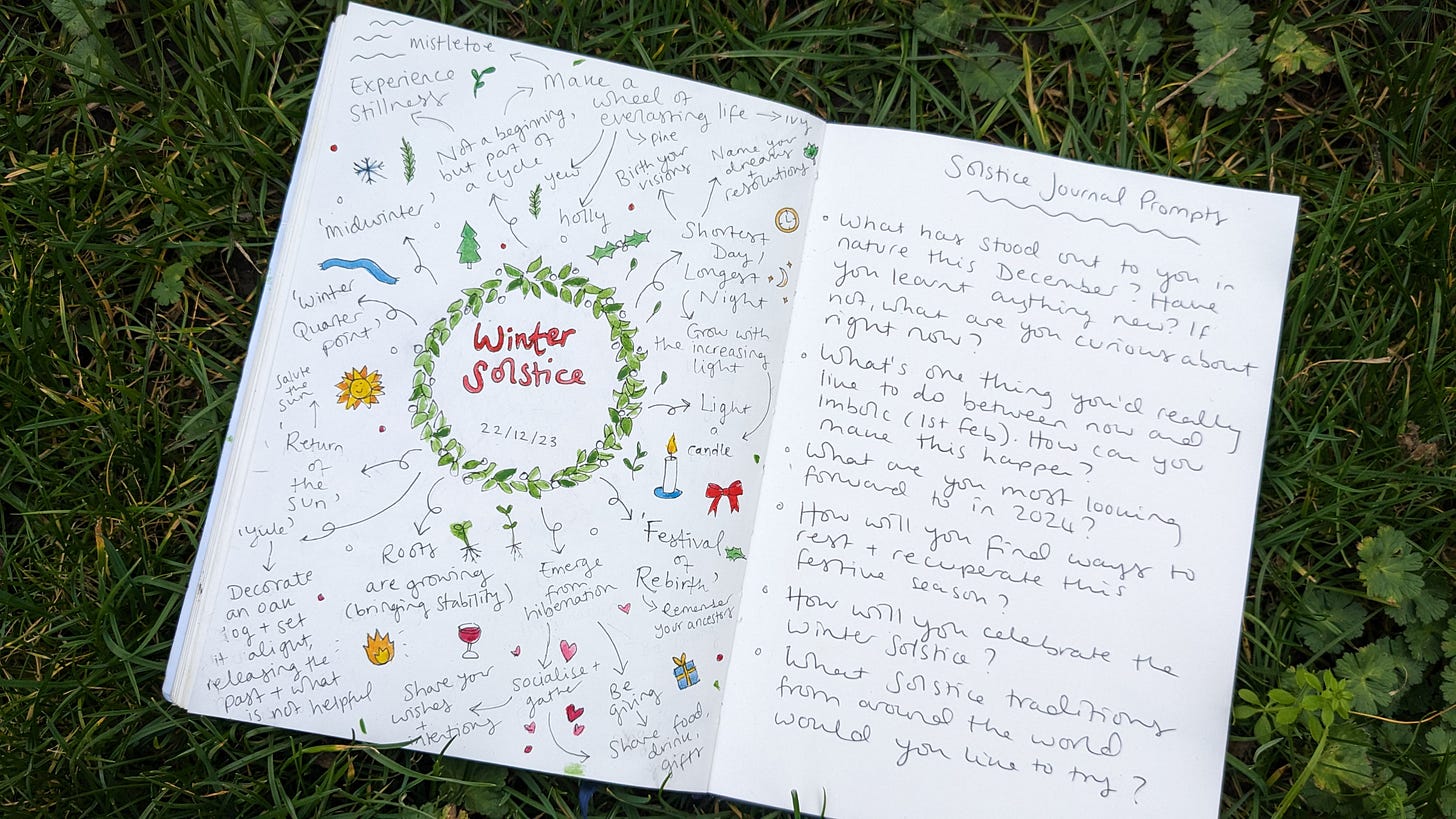 mistletoe
Experience
Stillness
Make a
wheel of
everlasting life
ivy
pine
yew
holly
Not a beginning,
but part of
a cycle
Birth your
visions
Name your
dreams
+
resolutions
'midwinter'
Shortest
Day,
Longest
Night
'Winter
Quarter
point'
Grow with
the increasing
light
Winter
Solstice
22/12/23
Salute
the
sun
Return
of
the
sun'
Light
candle
'yule'
Decorate
an oak
log + set
it alight,
releasing the
past + what
is not helpful
Roots
are growing
(bringing stability)
Emerge
from
hibernation
'Festival
of
Rebirth'
Remember
your ancestors
Share your
wishes
+
intentions
socialise +
gather
Be
giving
Share food,
drink,
gifts
Solstice Journal Prompts
• What has stood out to you in
nature this December? Have
you learnt anything new? If
not, what are you curious about
right now?
• What's one thing you'd really
like to do between now and
Imbolc (1st Feb). How can you
make this happen?
• What are you most looking
forward to in 2024?
• How will you find ways to
rest + recuperate this
festive season?
• How will you celebrate the
Winter Solstice?
• What Solstice traditions
from around the world
would you like to try?